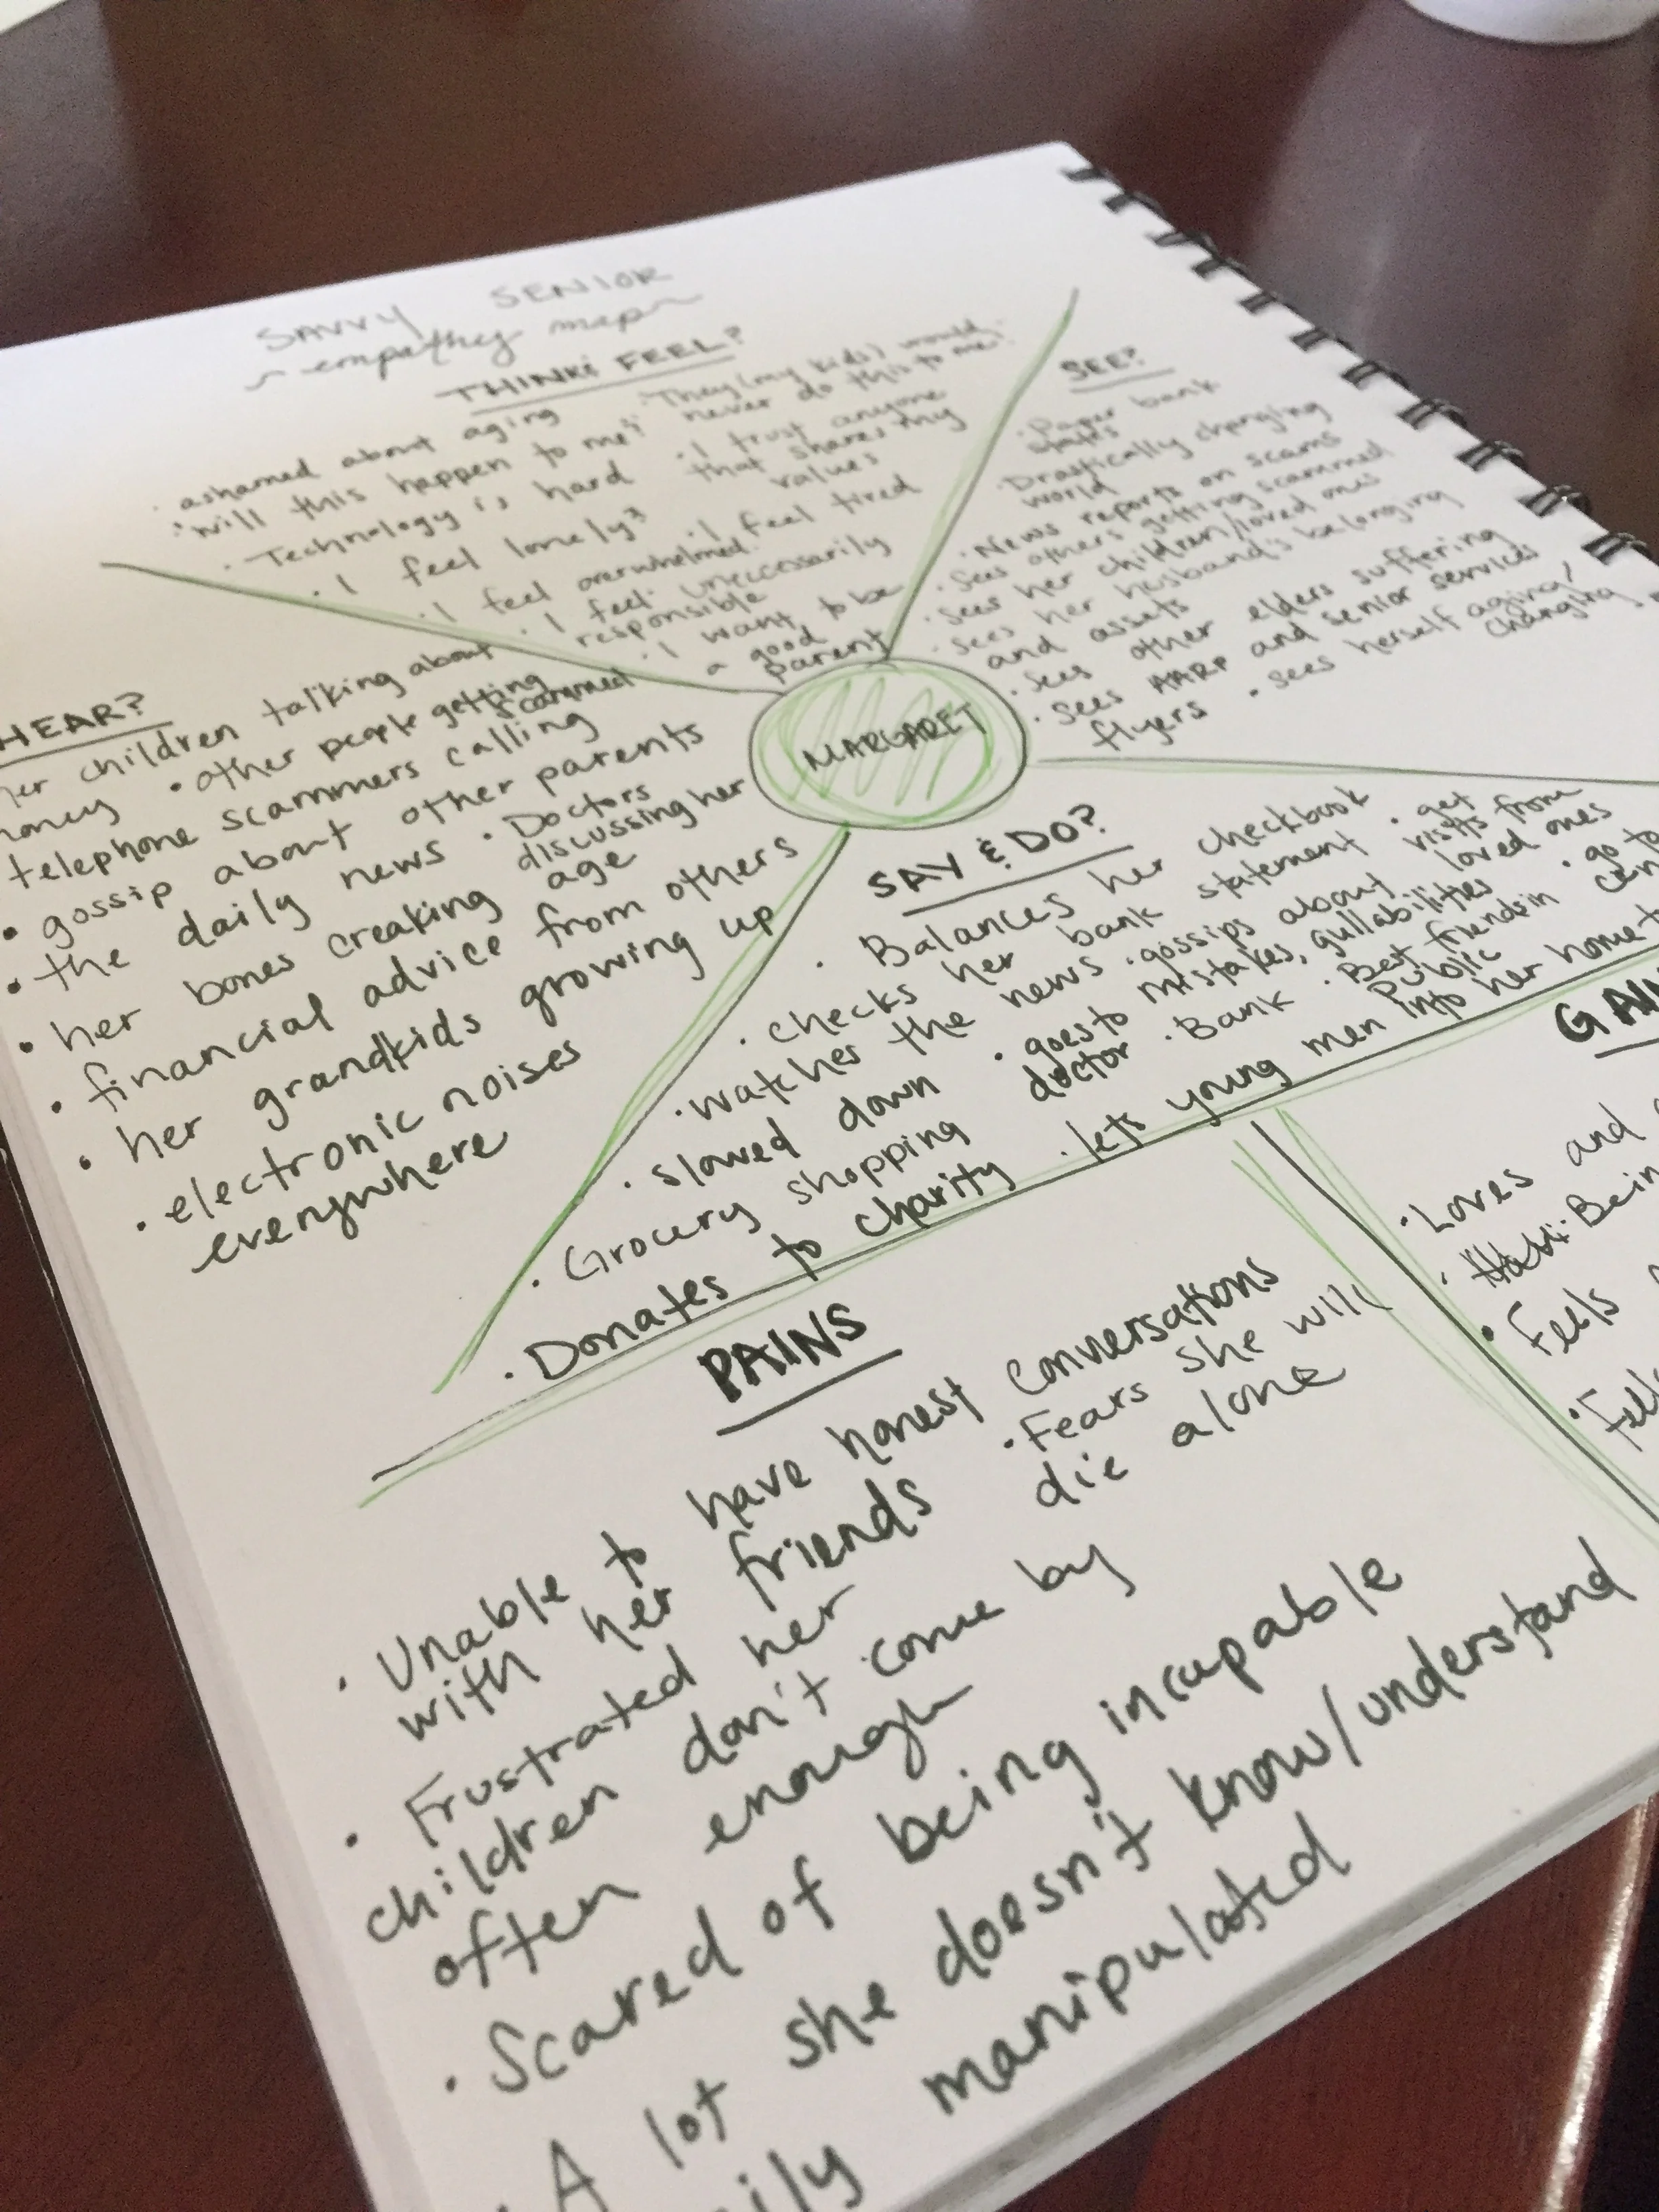 SAVVY SENIOR
~ empathy map ~
THINK & FEEL?
· ashamed about aging
· "will this happen to me?"
· Technology is hard
· I feel lonely?
· I feel overwhelmed
· I feel unneccessarily
responsible
· I want to be
a good
parent
· "They (my kids) would
never do this to me."
· I trust anyone
that shares my
values
· I feel tired
SEE?
· Paper bank
· Drastically changing
world
· News reports on scams
· Sees others getting scammed
· Sees her children/loved ones
· Sees her husband's belonging
and assets
· Sees other elders suffering
· Sees AARP and senior services
flyers
· sees herself aging/
changing
HEAR?
her children talking about
money
· other people getting
scammed
telephone scammers calling
· gossip about other parents
· the daily news
· Doctors
discussing her
age
· her bones creaking
· financial advice from others
· her grandkids growing up
· electronic noises
everywhere
MARGARET
SAY & DO?
· Balances her checkbook
· checks her bank statement
· get
visits from
loved ones
· watches the news
· gossips about
mistakes, gullabilities
· go to
· slowed down
· goes to
doctor
· Bank
· Best friends in
public
· Grocery shopping
· lets young men into her home
· Donates to charity
PAINS
· Unable to have honest conversations
with her friends
· Fears she will
die alone
· Frustrated her
children don't come by
often enough
· Scared of being incapable
· A lot she doesn't know/understand
manipulated
· Loves and
· Feels